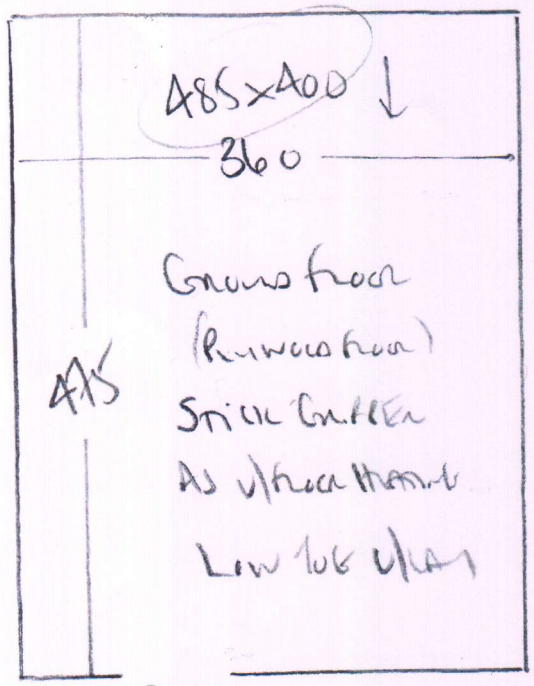 485x400 ↓
360
GROUND FLOOR
(PLYWOOD FLOOR)
475
STICK GRIPPER
AS U/FLOOR HEATING
LOW TOG U/LAY